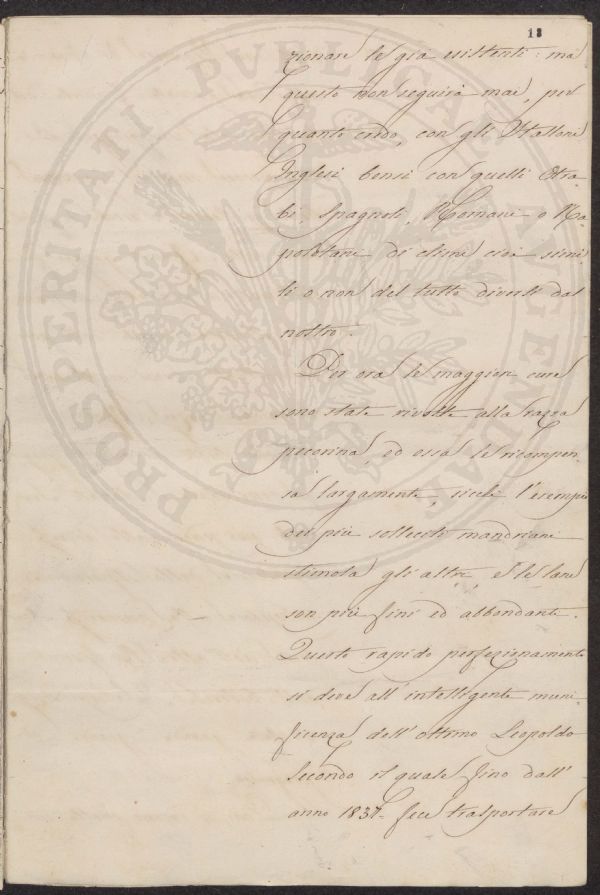 18
zionare le già esistenti: ma
questo non seguirà mai, per
quanto credo, con gli Stalloni
Inglesi bensì con quelli Ara
bi, Spagnoli, Romani o Na
poletani di climi cioè simi
li o non del tutto diversi dal
nostro.
Per ora le maggiori cure
sono state rivolte alla razza
pecorina, ed essa le ricompen
sa largamente, sicché l'esempio
dei più solleciti mandriani
stimola gli altri, e le lane
son più fini ed abbondanti.
Questo rapido perfezionamento
si deve all'intelligente muni
ficenza dell'ottimo Leopoldo
Secondo il quale fino dall'
anno 1837 fece trasportare
PROSPERITATI PUBLICAE AUGENDAE